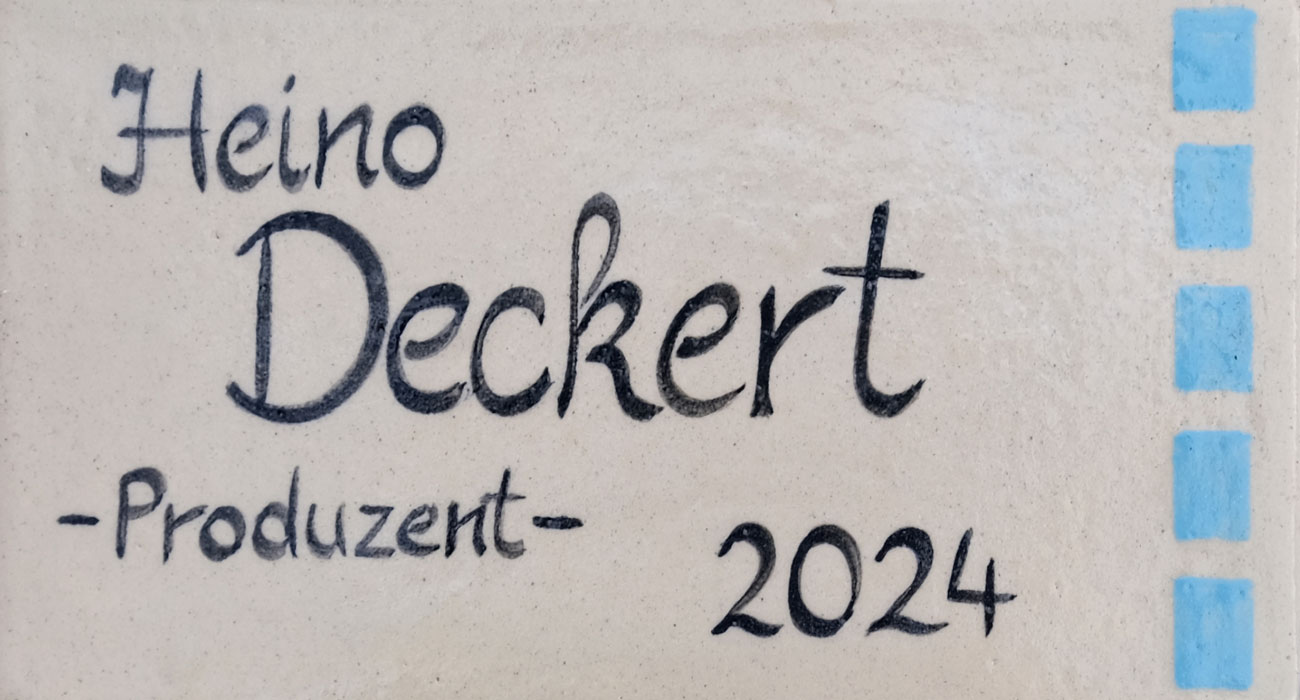 Heino
Deckert
-Produzent-
2024